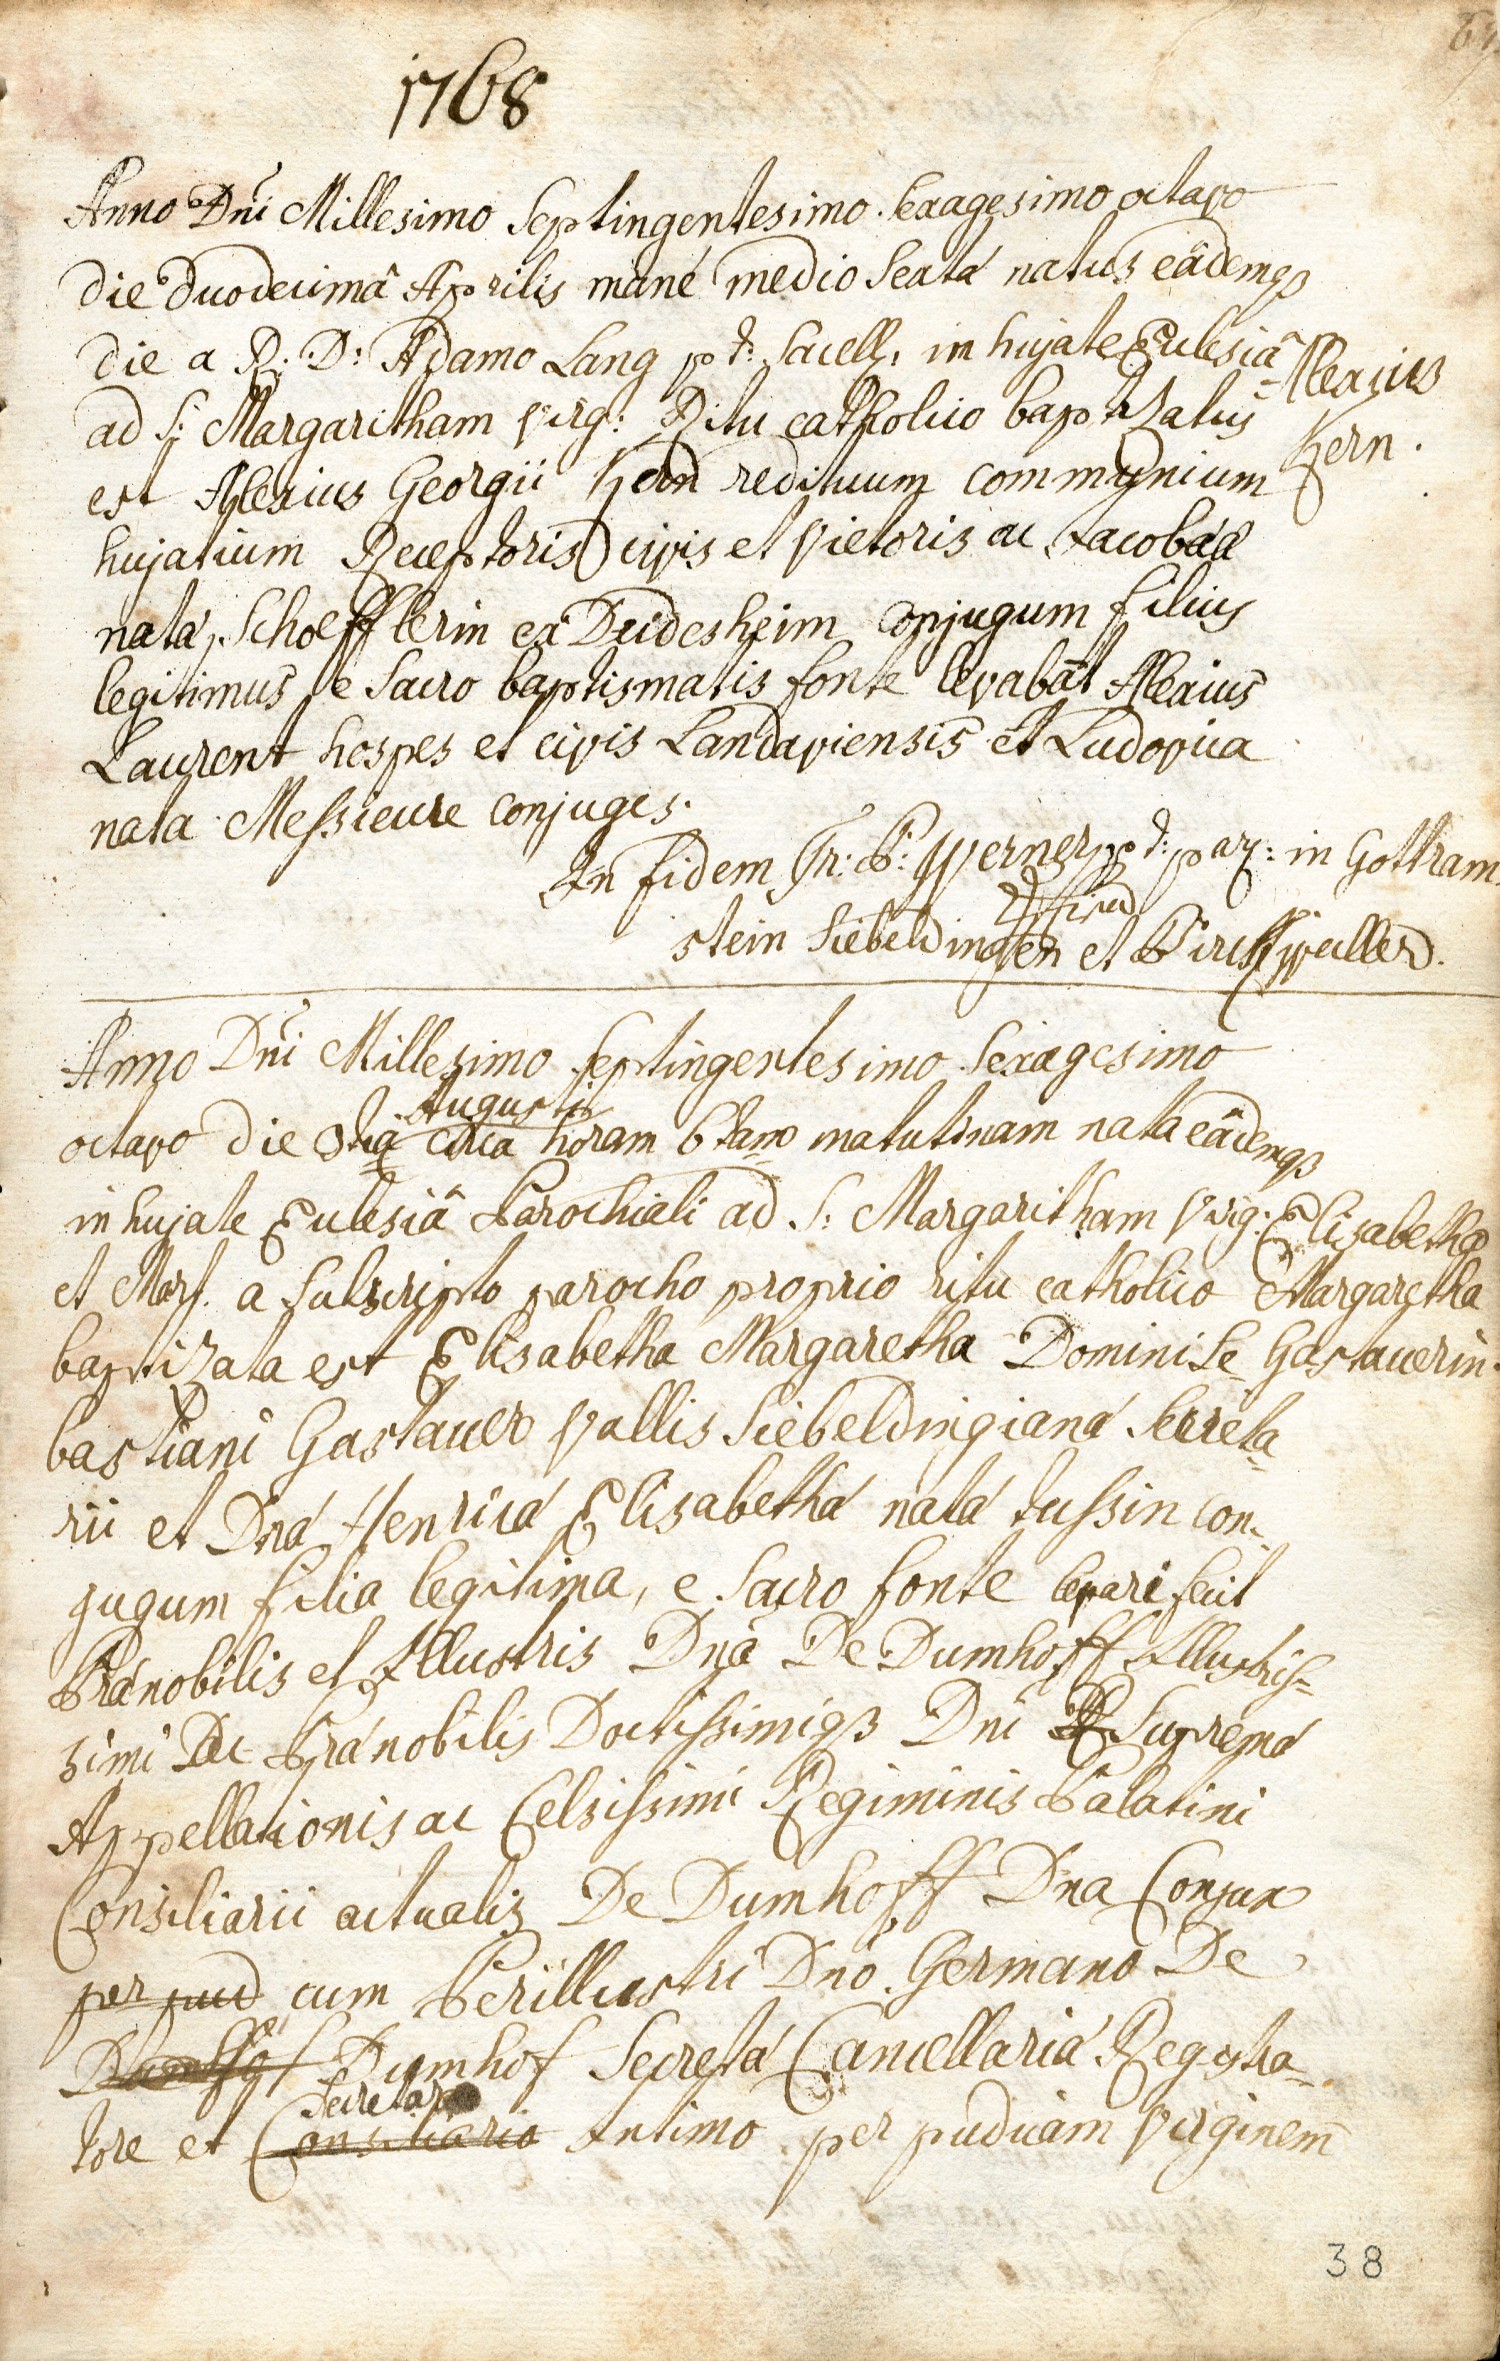 1768
Anno Dnī Millesimo Septingentesimo Sexagesimo octavo
die duodecimâ Aprilis mane medio Sexta natus eâdemqȝ
die a R: D: Adamo Lang p t: Sacell: in hujate Ecclesiâ
ad S: Margaritham virg: Ritu catholico baptizatus
Alexius
Kern.
est Alexius Georgii Kern redituum communium
hujatium Receptoris civis et vietoris ac Jacobææ
natæ Schoefflerin ex Deidesheim conjugum filius
legitimus e Sacro baptismatis fonte levabāt Alexius
Laurent hospes et civis Landaviensis et Ludovica
nata Messieure conjuges.
In fidem Fr: P: Werner p t: par: in Gottram
stein Siebeldingen et Birckweiller.
Anno Dnī Millesimo Septingentesimo Sexagesimo
Augusti
octavo die circa horam 6tam matutinam nata eâdemqȝ
in hujate Ecclesiâ Parochiali ad S: Margaritham virg:
Elisabetha
Margaretha
Gastauerin.
et Mart. a subscripto parocho proprio ritu catholico
baptizata est Elisabetha Margaretha Domini Se
bastiani Gastauer vallis Siebeldingianæ Secreta
rii et Dnæ Henricæ Elisabethæ natæ tussin con
jugum filia legitima, e Sacro fonte levari fecit
Prænobilis et Illustris Dna De Dumhoff Illustris=
simi ac Prænobilis Doctissimiqȝ Dni Supremæ
Appellationis ac Celsissimi Regiminis Palatini
Consiliarii actualis De Dumhoff Dna Conjux
per pud cum Perillustri Dnō Germano De
Dumhof Secretæ Cancellariæ Regystra
tore et Consiliario Intimo per pudicam virginem
38